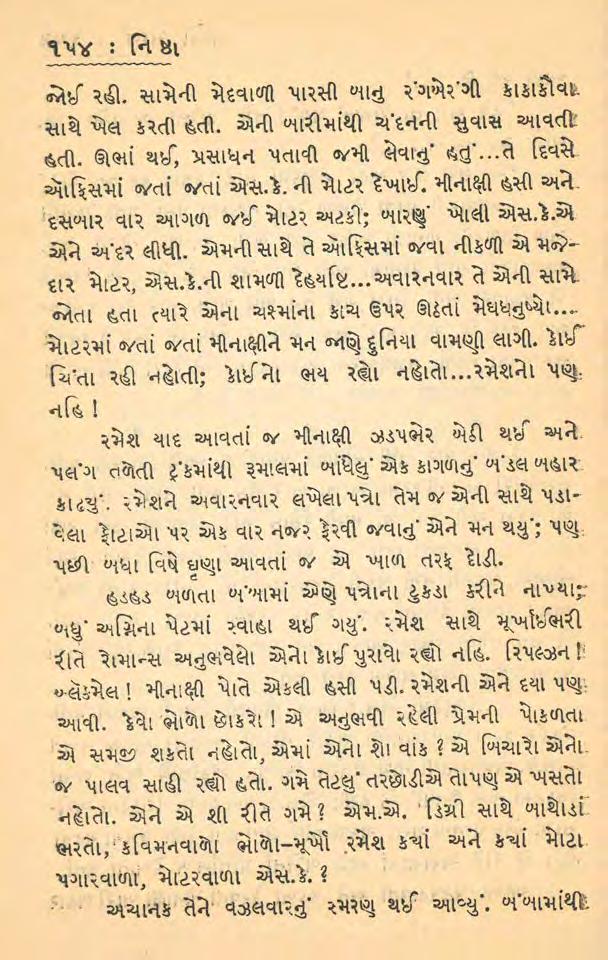 ૧૫૪ : નિષ્ઠા
જોઈ રહી. સામેની મેદવાળી પારસી બાનુ રંગબેરંગી કાકાકૌવા
સાથે ખેલ કરતી હતી. એની બારીમાંથી ચંદનની સુવાસ આવતી
હતી. ઊભાં થઈ, પ્રસાધન પતાવી જમી લેવાનું હતું...તે દિવસે
ઑફિસમાં જતાં જતાં એસ.કે. ની મોટર દેખાઈ. મીનાક્ષી હસી અને
દસબાર વાર આગળ જઈ મોટર અટકી; બારણું ખોલી એસ.કે.એ
એને અંદર લીધી. એમની સાથે તે ઑફિસમાં જવા નીકળી એ મજે-
દાર મોટર, એસ.કે.ની શામળી દેહયષ્ટિ...અવારનવાર તે એની સામે
જોતા હતા ત્યારે એના ચશ્માંના કાચ ઉપર ઊઠતાં મેઘધનુષ્યો...
મોટરમાં જતાં જતાં મીનાક્ષીને મન જાણે દુનિયા વામણી લાગી. કોઈ
ચિંતા રહી નહોતી; કોઈનો ભય રહ્યો નહોતો...રમેશનો પણ
નહિ !
રમેશ યાદ આવતાં જ મીનાક્ષી ઝડપભેર બેઠી થઈ અને
પલંગ તળેની ટ્રંકમાંથી રૂમાલમાં બાંધેલું એક કાગળનું બંડલ બહાર
કાઢ્યું. રમેશને અવારનવાર લખેલા પત્રો તેમ જ એની સાથે પડા-
વેલા ફોટાઓ પર એક વાર નજર ફેરવી જવાનું એને મન થયું; પણ
પછી બધા વિષે ઘૃણા આવતાં જ એ ખાળ તરફ દોડી.
હડહડ બળતા બંબામાં એણે પત્રોના ટુકડા કરીને નાખ્યા;
બધું અગ્નિના પેટમાં સ્વાહા થઈ ગયું. રમેશ સાથે મૂર્ખાઈભરી
રીતે રોમાન્સ અનુભવેલો એનો કોઈ પુરાવો રહ્યો નહિ. રિપલ્ઝન !
બ્લૅકમેલ ! મીનાક્ષી પોતે એકલી હસી પડી. રમેશની એને દયા પણ
આવી. કેવો ભોળો છોકરો ! એ અનુભવી રહેલી પ્રેમની પોકળતા
એ સમજી શકતો નહોતો, એમાં એનો શો વાંક ? એ બિચારો એનો
જ પાલવ સાહી રહ્યો હતો. ગમે તેટલું તરછોડીએ તોપણ એ ખસતો
નહોતો. એને એ શી રીતે ગમે ? એમ.એ. ડિગ્રી સાથે બાથોડાં
ભરતો, કવિમનવાળો ભોળો-મૂર્ખો રમેશ ક્યાં અને ક્યાં મોટા
પગારવાળા, મોટરવાળા એસ.કે. ?
અચાનક તેને વઝલવારનું સ્મરણ થઈ આવ્યું. બંબામાંથી